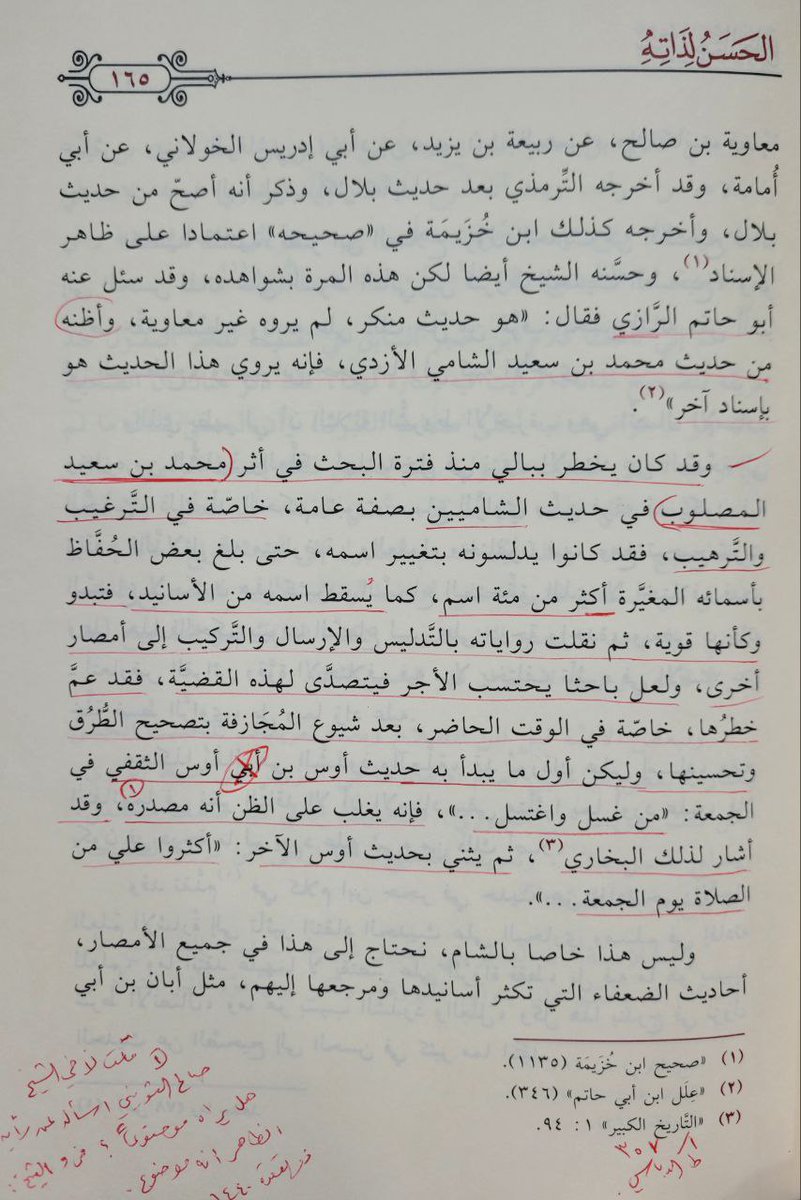 الحَسَنُ لِذَاتِهِ
١٦٥
معاوية بن صالح، عن ربيعة بن يزيد، عن أبي إدريس الخولاني، عن أبي
أُمامة، وقد أخرجه التِّرمذي بعد حديث بلال، وذكر أنه أصحّ من حديث
بلال، وأخرجه كذلك ابن خُزَيمَة في «صحيحه» اعتمادا على ظاهر
الإسناد(١)، وحسَّنه الشيخ أيضا لكن هذه المرة بشواهده، وقد سئل عنه
أبو حاتم الرَّازي فقال: «هو حديث منكر، لم يروه غير معاوية، وأظنه
من حديث محمد بن سعيد الشامي الأزدي، فإنه يروي هذا الحديث هو
بإسناد آخر»(٢).
وقد كان يخطر ببالي منذ فترة البحث في أثر محمد بن سعيد
المصلوب في حديث الشاميين بصفة عامة، خاصّة في التَّرغيب
والتَّرهيب، فقد كانوا يدلسونه بتغيير اسمه، حتى بلغ بعض الحُفَّاظ
بأسمائه المغيَّرة أكثر من مئة اسم، كما يُسقط اسمه من الأسانيد، فتبدو
وكأنها قوية، ثم نقلت رواياته بالتَّدليس والإرسال والتَّركيب إلى أمصار
أخرى، ولعل باحثا يحتسب الأجر فيتصدَّى لهذه القضيَّة، فقد عمَّ
خطرُها، خاصّة في الوقت الحاضر، بعد شيوع المُجَازفة بتصحيح الطُّرُق
وتحسينها، وليكن أول ما يبدأ به حديث أوس بن أبي أوس الثقفي في
الجمعة: «من غسل واغتسل...»، فإنه يغلب على الظن أنه مصدره(١)، وقد
أشار لذلك البخاري(٣)، ثم يثني بحديث أوس الآخر: «أكثروا علي من
الصلاة يوم الجمعة...».
وليس هذا خاصا بالشام، نحتاج إلى هذا في جميع الأمصار،
أحاديث الضعفاء التي تكثر أسانيدها ومرجعها إليهم، مثل أبان بن أبي
(١) «صحيح ابن خُزَيمَة (١١٣٥).
(٢) «عِلَل ابن أبي حاتم» (٣٤٦).
(٣) «التَّاريخ الكبير» ١: ٩٤.
٣٥٧
ط الدباسي
(١) كتبت لأخي الشيخ
صالح اسأله عن رأيه
هل يراه موضوعاً؟ فرد الشيخ:
الظاهر أنه موضوع.
١٤٤٠